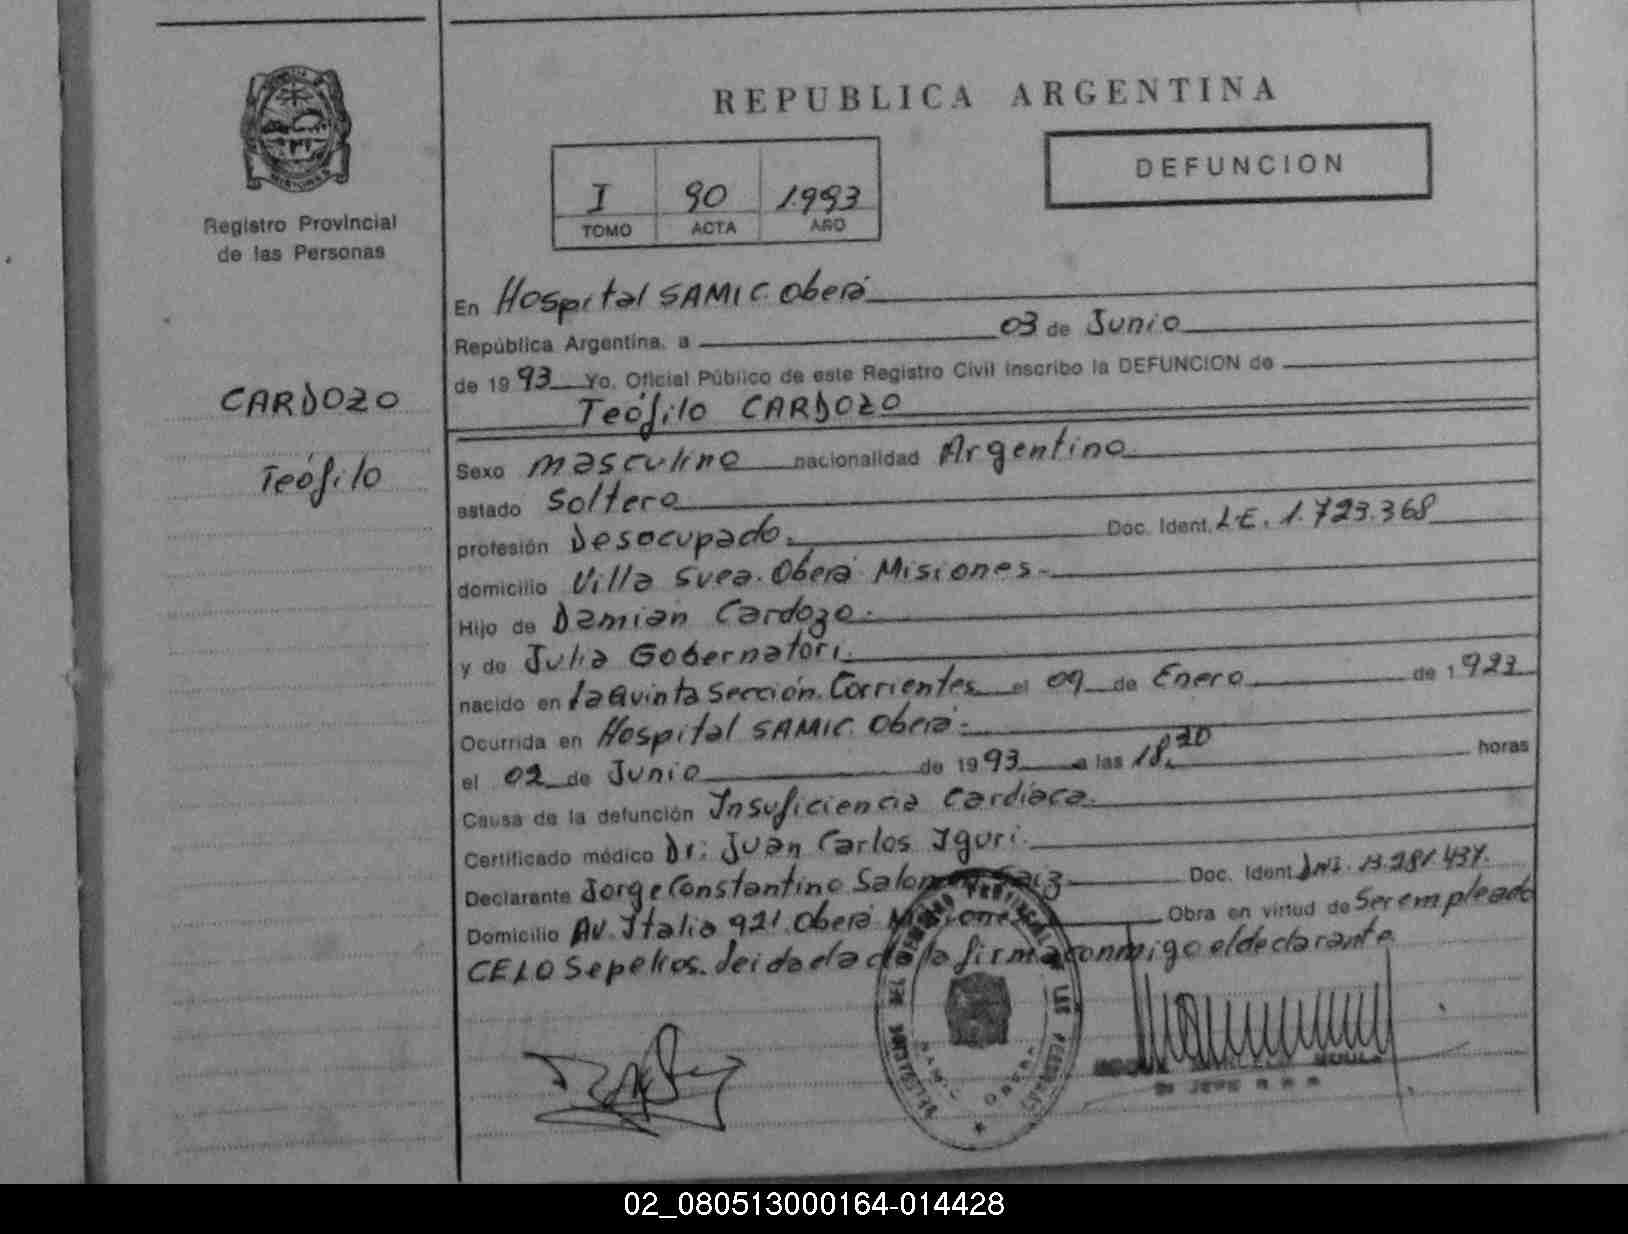 REPUBLICA ARGENTINA
DEFUNCION
I 90 1993
TOMO ACTA AÑO
MISIONES
Registro Provincial
de las Personas
CARDOZO
Teófilo
En Hospital SAMIC. Oberá
República Argentina, a 03 de Junio
de 1993 Yo, Oficial Público de este Registro Civil inscribo la DEFUNCION de
Teófilo CARDOZO
Sexo masculino nacionalidad Argentino
estado Soltero
profesión Desocupado. Doc. Ident. L.E. 1.723.368
domicilio Villa Svea. Oberá Misiones.
Hijo de Damián Cardozo.
y de Julia Gobernatori.
nacido en la Quinta Sección. Corrientes el 09 de Enero de 1923
Ocurrida en Hospital SAMIC. Oberá.
el 02 de Junio de 1993 a las 18,20 horas
Causa de la defunción Insuficiencia Cardíaca.
Certificado médico Dr. Juan Carlos Iguri.
Declarante Jorge Constantino Doc. Ident. DNI. 13.281.437.
Domicilio Av. Italia 921. Oberá Misiones Obra en virtud de Ser empleado
CELO Sepelios. leida el acta la firma conmigo el declarante
DEL REGISTRO PROVINCIAL DE LAS PERSONAS
SAMIC OBERA
JEFE
02_080513000164-014428